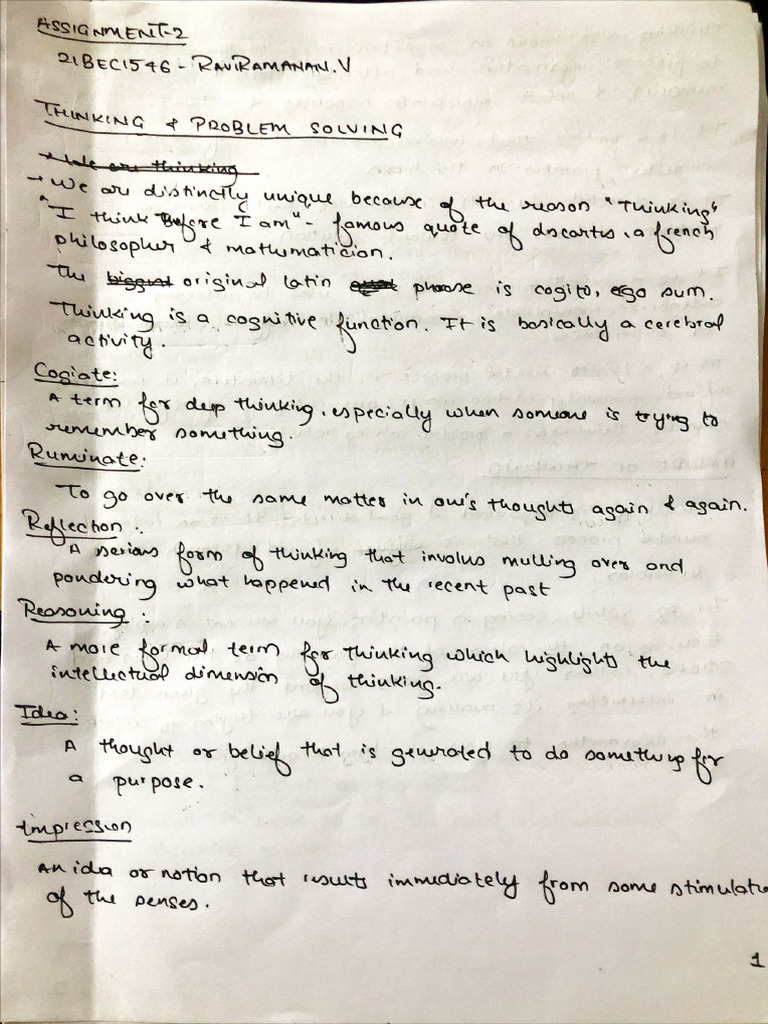 ASSIGNMENT-2
21BEC1546 - RAVIRAMANAN.V
THINKING & PROBLEM SOLVING
We are thinking
→ We are distinctly unique because of the reason "Thinking"
"I think Before I am" - famous quote of discartes, a french
philosopher & mathematician.
The biggest original latin phrase is cogito, ergo sum.
Thinking is a cognitive function. It is basically a cerebral
activity.
Cogiate:
A term for deep thinking, especially when someone is trying to
remember something.
Ruminate:
To go over the same matter in one's thoughts again & again.
Reflection:
A serious form of thinking that involves mulling over and
pondering what happened in the recent past
Reasoning:
A more formal term for thinking which highlights the
intellectual dimension of thinking.
Idea:
A thought or belief that is generated to do something for
a purpose.
Impression
An idea or notion that results immediately from some stimulatio
of the senses.
1